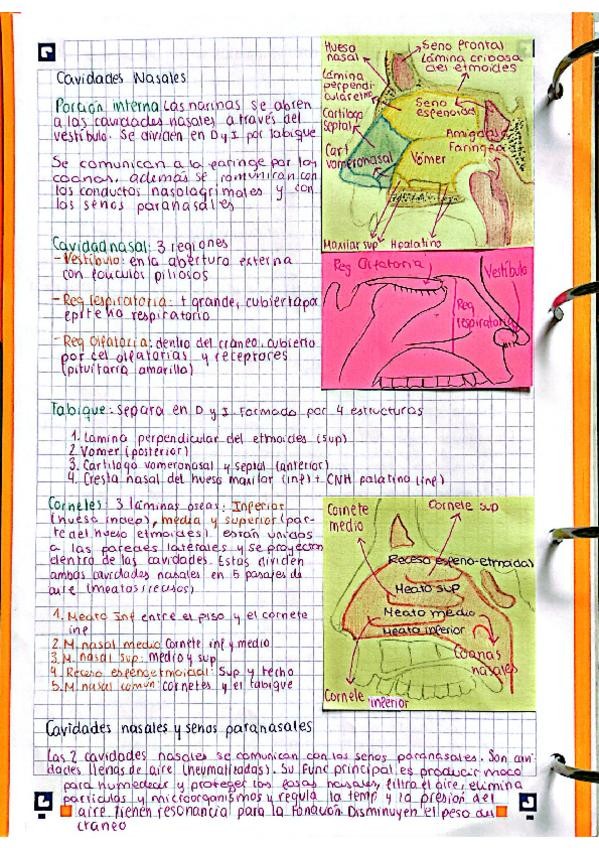 Cavidades Nasales
Porción interna Las narinas se abren
a las cavidades nasales a través del
vestíbulo. Se dividen en D y I por tabique
Se comunican a la faringe por las
coanas, además se comunican con
los conductos nasolagrimales y con
los senos paranasales
Hueso nasal
Seno frontal
Lámina cribosa
del etmoides
Lámina
perpendi-
cular etm
Cartílago
Septal
Cart
vomeronasal
Seno
esfenoidal
Amígdala
Faríngea
Vómer
Maxilar sup
H palatino
Cavidad nasal: 3 regiones
- Vestíbulo: en la abertura externa
con folículos piliosos
- Reg respiratoria: + grande, cubierta por
epitelio respiratorio
- Reg Olfatoria: dentro del cráneo, cubierto
por cel olfatorias y receptores
(pituitaria amarilla)
Reg Olfatoria
Vestíbulo
Reg
respiratoria
Tabique: separa en D y I. Formado por 4 estructuras
1. Lamina perpendicular del etmoides (sup)
2 Vomer (posterior)
3. Cartílago vomeronasal y septal (anterior)
4. Cresta nasal del hueso maxilar (inf) + CNH palatino (inf)
Cornetes: 3 láminas oseas: Inferior
media y superior (par-
te del hueso etmoides). están unidos
a las paredes laterales y se proyectan
dentro de las cavidades. Estas dividen
ambas cavidades nasales en 5 pasajes de
aire (meatos
1. Meato Inf entre el piso y el cornete
inf
2. M. nasal medio Cornete inf y medio
3. M. nasal sup: medio y sup
4. Receso esfenoetmoidal: Sup y techo
5. M nasal común: cornetes y el tabique
Cornete
medio
Cornete sup
Receso esfeno-etmoidal
Meato sup
Meato medio
Meato inferior
Coanas
nasales
Cornete inferior
Cavidades nasales y senos paranasales
Las 2 cavidades nasales se comunican con los senos paranasales. Son cavi-
dades llenas de aire (neumatizadas). Su func principal es producir moco
para humedecer y proteger las fosas nasales, filtra el aire, elimina
partículas y microorganismos y regula la temp y la presión del
aire tienen resonancia para la fonación Disminuyen el peso del
cráneo